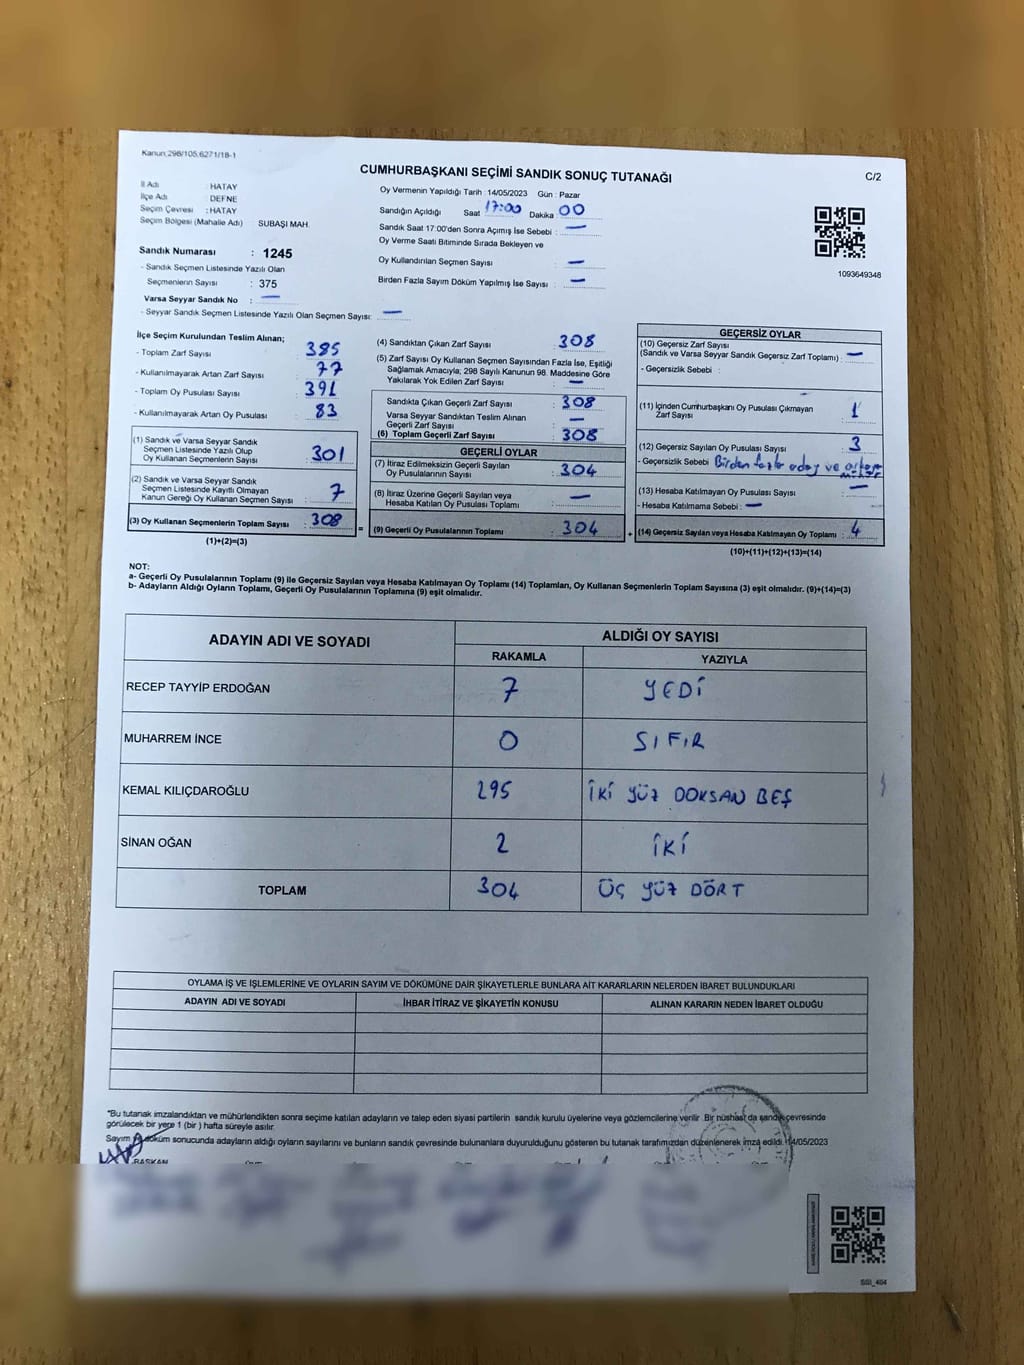 Kanun;298/105,6271/18-1
CUMHURBAŞKANI SEÇİMİ SANDIK SONUÇ TUTANAĞI
C/2
İl Adı : HATAY
İlçe Adı : DEFNE
Seçim Çevresi : HATAY
Seçim Bölgesi (Mahalle Adı) SUBAŞI MAH.
Sandık Numarası : 1245
- Sandık Seçmen Listesinde Yazılı Olan
Seçmenlerin Sayısı : 375
Varsa Seyyar Sandık No : —
- Seyyar Sandık Seçmen Listesinde Yazılı Olan Seçmen Sayısı: —
Oy Vermenin Yapıldığı Tarih : 14/05/2023 Gün : Pazar
Sandığın Açıldığı Saat 17:00 Dakika : 00
Sandık Saat 17:00'den Sonra Açımış İse Sebebi : —
Oy Verme Saati Bitiminde Sırada Bekleyen ve
Oy Kullandırılan Seçmen Sayısı : —
Birden Fazla Sayım Döküm Yapılmış İse Sayısı : —
1093649348
İlçe Seçim Kurulundan Teslim Alınan;
- Toplam Zarf Sayısı : 385
- Kullanılmayarak Artan Zarf Sayısı : 77
- Toplam Oy Pusulası Sayısı : 391
- Kullanılmayarak Artan Oy Pusulası : 83
(1) Sandık ve Varsa Seyyar Sandık
Seçmen Listesinde Yazılı Olup
Oy Kullanan Seçmenlerin Sayısı : 301
(2) Sandık ve Varsa Seyyar Sandık
Seçmen Listesinde Kayıtlı Olmayan
Kanun Gereği Oy Kullanan Seçmen Sayısı : 7
(3) Oy Kullanan Seçmenlerin Toplam Sayısı : 308
(1)+(2)=(3)
(4) Sandıktan Çıkan Zarf Sayısı : 308
(5) Zarf Sayısı Oy Kullanan Seçmen Sayısından Fazla İse, Eşitliği
Sağlamak Amacıyla; 298 Sayılı Kanunun 98. Maddesine Göre
Yakılarak Yok Edilen Zarf Sayısı : —
Sandıkta Çıkan Geçerli Zarf Sayısı : 308
Varsa Seyyar Sandıktan Teslim Alınan
Geçerli Zarf Sayısı : —
(6) Toplam Geçerli Zarf Sayısı : 308
GEÇERLİ OYLAR
(7) İtiraz Edilmeksizin Geçerli Sayılan
Oy Pusulalarının Sayısı : 304
(8) İtiraz Üzerine Geçerli Sayılan veya
Hesaba Katılan Oy Pusulası Toplamı : —
=
(9) Geçerli Oy Pusulalarının Toplamı : 304
+
GEÇERSİZ OYLAR
(10) Geçersiz Zarf Sayısı
(Sandık ve Varsa Seyyar Sandık Geçersiz Zarf Toplamı) : —
- Geçersizlik Sebebi :
(11) İçinden Cumhurbaşkanı Oy Pusulası Çıkmayan
Zarf Sayısı : 1
(12) Geçersiz Sayılan Oy Pusulası Sayısı : 3
- Geçersizlik Sebebi Birden fazla aday ve
(13) Hesaba Katılmayan Oy Pusulası Sayısı : —
- Hesaba Katılmama Sebebi : —
(14) Geçersiz Sayılan veya Hesaba Katılmayan Oy Toplamı : 4
(10)+(11)+(12)+(13)=(14)
NOT:
a- Geçerli Oy Pusulalarının Toplamı (9) ile Geçersiz Sayılan veya Hesaba Katılmayan Oy Toplamı (14) Toplamları, Oy Kullanan Seçmenlerin Toplam Sayısına (3) eşit olmalıdır. (9)+(14)=(3)
b- Adayların Aldığı Oyların Toplamı, Geçerli Oy Pusulalarının Toplamına (9) eşit olmalıdır.
ADAYIN ADI VE SOYADI
ALDIĞI OY SAYISI
RAKAMLA YAZIYLA
RECEP TAYYİP ERDOĞAN 7 YEDİ
MUHARREM İNCE 0 SIFIR
KEMAL KILIÇDAROĞLU 295 İKİ YÜZ DOKSAN BEŞ
SİNAN OĞAN 2 İKİ
TOPLAM 304 ÜÇ YÜZ DÖRT
OYLAMA İŞ VE İŞLEMLERİNE VE OYLARIN SAYIM VE DÖKÜMÜNE DAİR ŞİKAYETLERLE BUNLARA AİT KARARLARIN NELERDEN İBARET BULUNDUKLARI
ADAYIN ADI VE SOYADI İHBAR İTİRAZ VE ŞİKAYETİN KONUSU ALINAN KARARIN NEDEN İBARET OLDUĞU
*Bu tutanak imzalandıktan ve mühürlendikten sonra seçime katılan adayların ve talep eden siyasi partilerin sandık kurulu üyelerine veya gözlemcilerine verilir. Bir nüshası da sandık çevresinde
görülecek bir yere 1 (bir ) hafta süreyle asılır.
Sayım ve döküm sonucunda adayların aldığı oyların sayılarını ve bunların sandık çevresinde bulunanlara duyurulduğunu gösteren bu tutanak tarafımızdan düzenlenerek imza edildi. 14/05/2023
BAŞKAN
SSI_464